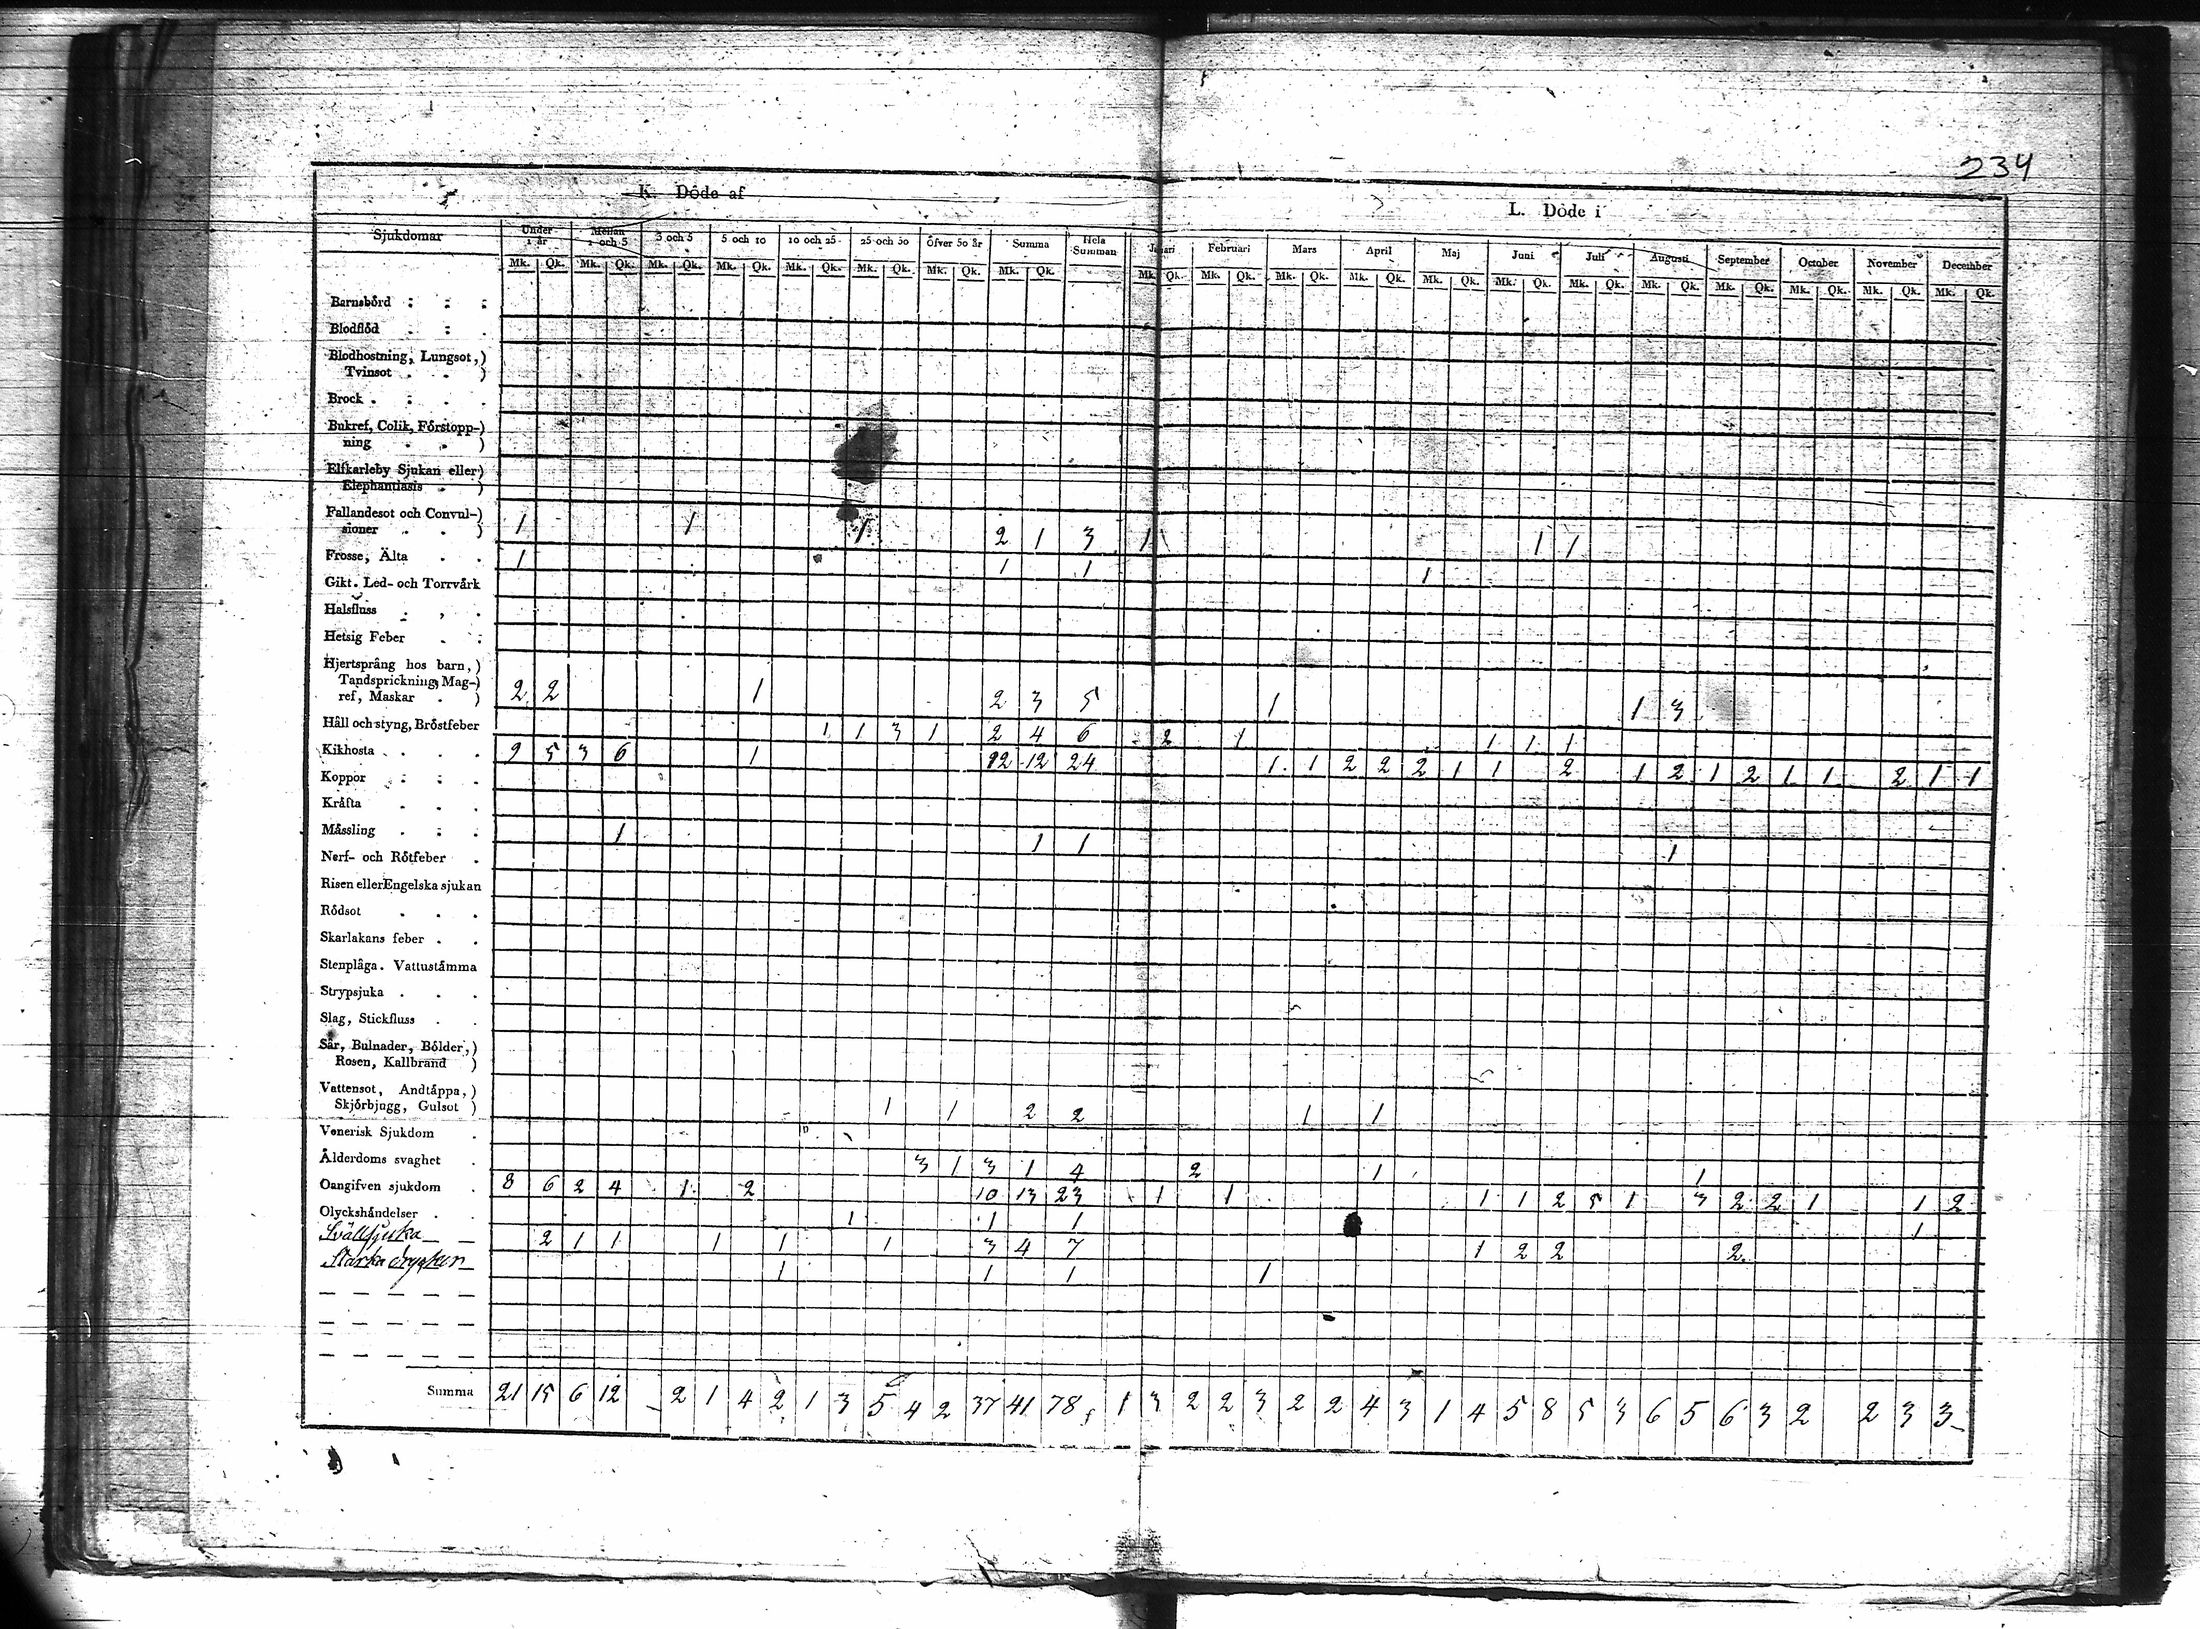 234
K. Döde af
L. Döde i
Sjukdomar Under 1 år Mellan 1 och 3 3 och 5 5 och 10 10 och 25 25 och 50 Öfver 50 år Summa Hela Summan Januari Februari Mars April Maj Juni Juli Augusti September October November December
Mk. Qk. Mk. Qk. Mk. Qk. Mk. Qk. Mk. Qk. Mk. Qk. Mk. Qk. Mk. Qk. Mk. Qk. Mk. Qk. Mk. Qk. Mk. Qk. Mk. Qk. Mk. Qk. Mk. Qk. Mk. Qk. Mk. Qk. Mk. Qk. Mk. Qk. Mk. Qk.
Barnsbörd
Blodflöd
Blodhostning, Lungsot,)
Tvinsot )
Brock
Bukref, Colik, Förstopp-)
ning )
Elfkarleby Sjukan eller)
Elephantiasis )
Fallandesot och Convul-)
sioner ) 1 1 1 2 1 3 1 1 1
Frosse, Älta 1 1 1 1
Gikt. Led- och Torrvärk
Halsfluss
Hetsig Feber
Hjertsprång hos barn,)
Tandsprickning, Mag-)
ref, Maskar ) 2 2 1 2 3 5 1 1 3
Håll och styng, Bröstfeber 1 1 3 1 2 4 6 2 1 1 1 1
Kikhosta 9 5 3 6 1 12 12 24 1 1 2 2 2 1 1 2 1 2 1 2 1 1 2 1 1
Koppor
Kräfta
Mässling 1 1 1 1
Nerf- och Rötfeber
Risen eller Engelska sjukan
Rödsot
Skarlakans feber
Stenplåga. Vattustämma
Strypsjuka
Slag, Stickfluss
Sår, Bulnader, Bölder,)
Rosen, Kallbrand )
Vattensot, Andtäppa,)
Skjörbjugg, Gulsot ) 1 1 2 2 1 1
Venerisk Sjukdom
Ålderdoms svaghet 3 1 3 1 4 2 1 1
Oangifven sjukdom 8 6 2 4 1 2 10 13 23 1 1 1 1 2 5 1 3 2 2 1 1 2
Olyckshändelser 1 1 1 1
Svällsjuka 2 1 1 1 1 1 3 4 7 1 2 2 2
Starka drycker 1 1 1 1
Summa 21 15 6 12 2 1 4 2 1 3 5 4 2 37 41 78 1 3 2 2 3 2 2 4 3 1 4 5 8 5 3 6 5 6 3 2 2 3 3